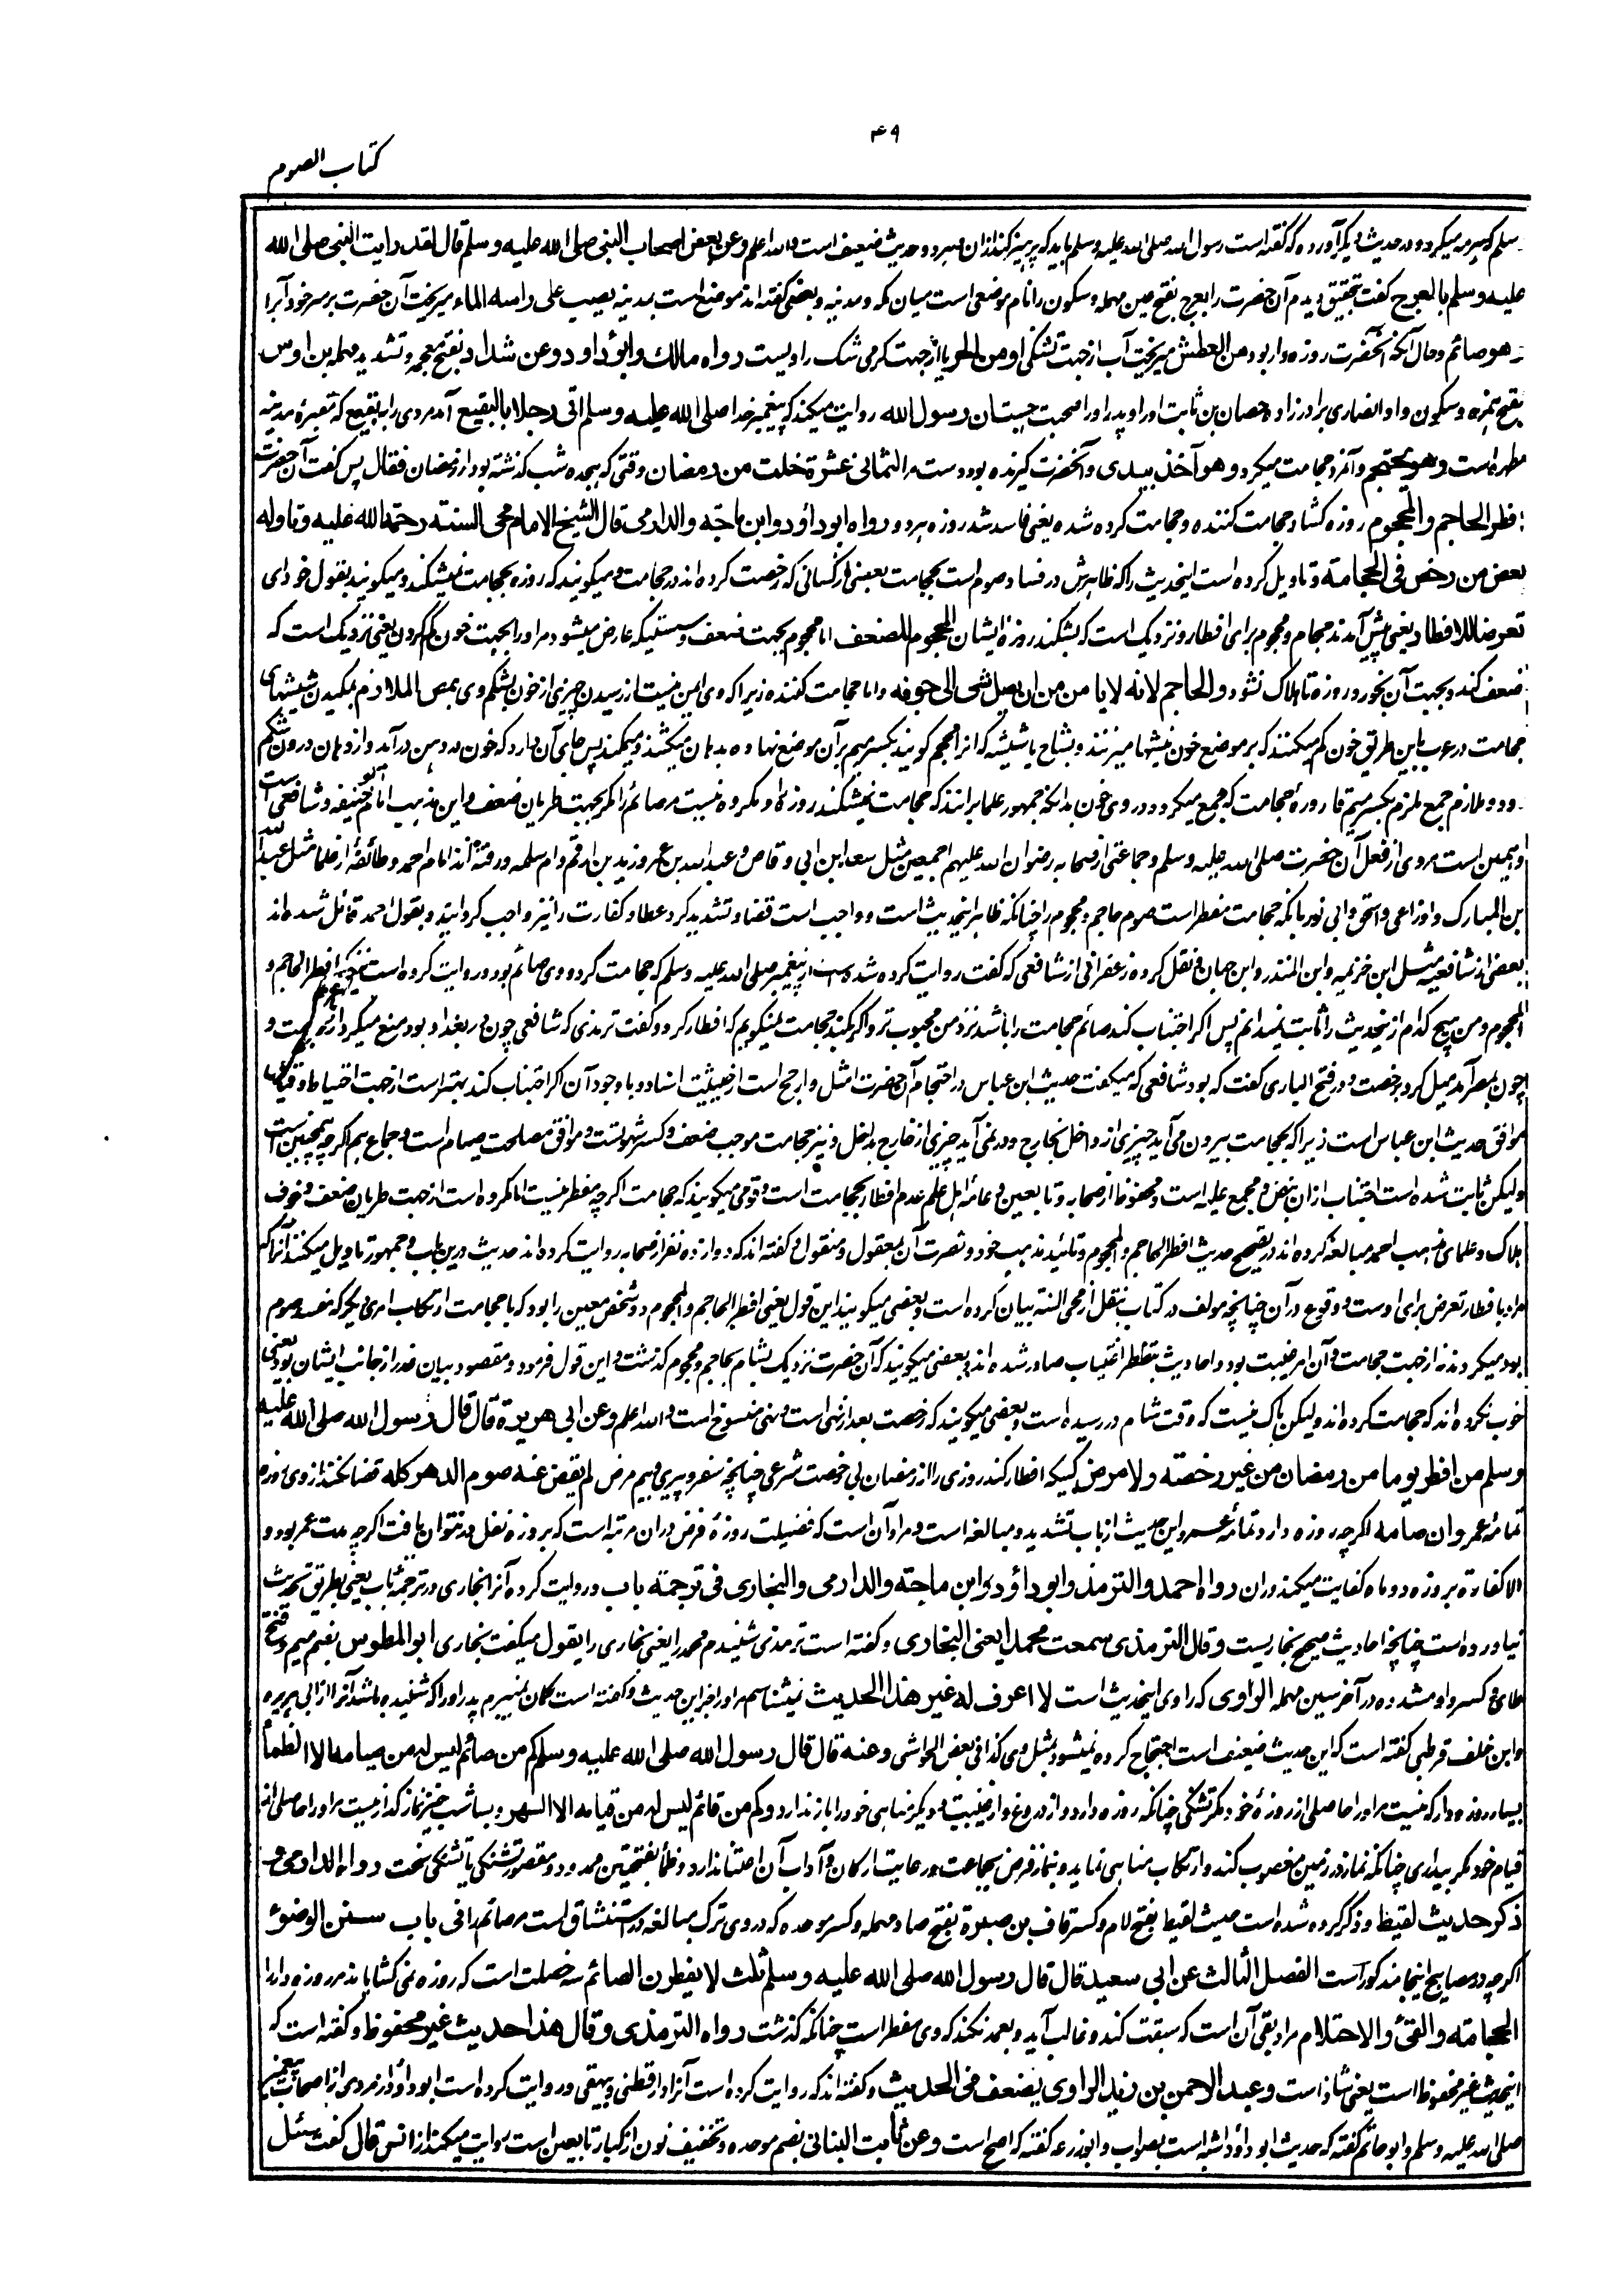 ۴۹
کتاب الصوم
سلم که سرمه میکرد و در حدیث دیگر آورده که گفته است رسول الله صلی الله علیه وسلم باید که پرهیز کند ازان و حدیث ضعیف است والله اعلم وعن بعض اصحاب النبی صلی الله علیه وسلم قال لقد رایت النبی صلی الله
علیه وسلم بالعرج گفت بتحقیق دیدم آن حضرت را بعرج بفتح عین مهمله وسکون را نام موضعی است میان مکه ومدینه وبعضی گفته اند موضع است بمدینه یصیب علی راسه الماء میریخت آن حضرت بر سر خود آب را
وهو صائم وحال آنکه آنحضرت روزه دار بود من العطش میریخت آب از جهت تشنگی او من الحر یا از جهت گرمی شک راویست رواه مالك وابوداود وعن شداد بفتح معجمه وتشدید مهمله بن اوس
بفتح همزه وسکون واو انصاری برادرزاده حسان بن ثابت او را و پدر او را صحبت است ان رسول الله روایت میکند که پیغمبر خدا صلی الله علیه وسلم اتی رجلا بالبقیع آمد مردی را به بقیع که مقبرهٔ مدینه
مطهره است وهو یحتجم وآنمرد حجامت میکرد وهو آخذ بیدی وآنحضرت گیرنده بود دست مرا لثمانی عشرة خلت من رمضان وقتی که هجده شب گذشته بود از رمضان فقال پس گفت آن حضرت
افطر الحاجم والمحجوم روزه کشاد حجامت کننده وحجامت کرده شده یعنی فاسد شد روزه هر دو رواه ابوداؤد وابن ماجة والدارمی قال الشیخ الامام محی السنته رحمة الله علیه وتاوله
بعض من رخص فی الحجامته وتاویل کرده است اینحدیث را که ظاهرش در فساد صوم است بحجامت بعضی از کسانی که رخصت کرده اند در حجامت ومیگویند که روزه بحجامت نمیشکند ومیگویند بقول خود ای
تعرضا للافطار یعنی پیش آمدند حجام ومحجوم برای افطار ونزدیک است که بشکند روزهٔ ایشان المحجوم للضعف اما محجوم بجهت ضعف وسستی که عارض میشود مر او را بجهت خون کم کردن یعنی نزدیک است که
ضعف کند وبجهت آن بخورد روزه تا هلاک نشود والحاجم لانه لا یامن من ان یصل شی الی جوفه واما حجامت کننده زیرا که وی ایمن نیست از رسیدن چیزی از خون بشکم وی بمص الملازم بمکیدن شیشهای
حجامت در عرب باین طریق خون کم میکنند که بر موضع خون نیشها میزنند وبشاخ یا شیشه که آنرا محجم گویند بکسر میم بر آن موضع نهاده بدهان میکشند ومیمکند پس جای آن دارد که خون در دهن در آید واز دهان درون شکم
رود وملازم جمع ملزم بکسر میم قارورهٔ حجامت که جمع میکرد در وی خون بدانکه جمهور علما برانند که حجامت نمیشکند روزه را ومکروه نیست مر صائم را مگر بجهت طریان ضعف واین مذهب امام ابو حنیفه وشافعی است
وهمین است مروی از فعل آن حضرت صلی الله علیه وسلم وجماعتی از صحابه رضوان الله علیهم اجمعین مثل سعد ابن ابی وقاص وعبدالله بن عمر وزید بن ارقم وام سلمه ورفته اند امام احمد وطائفهٔ از علما مثل عبدالله
بن المبارک واوزاعی واسحق وابی ثور بآنکه حجامت مفطر است صوم حاجم ومحجوم را چنانکه ظاهر اینحدیث است وواجب است قضا وتشدید کرد عطا وکفارت را نیز واجب گردانید وبقول احمد قائل شده اند
بعضی از شافعیه مثل ابن خزیمه وابن المنذر وابن حبان ونقل کرده زعفرانی از شافعی که گفت روایت کرده شده است از پیغمبر صلی الله علیه وسلم که حجامت کرد ووی صائم بود وروایت کرده است نیز که افطر الحاجم و
المحجوم ومن هیچ کدام ازینحدیث را ثابت نمیدانم پس اگر اجتناب کند صائم حجامت را باشد نزد من محبوب تر واگر بکند حجامت نمیگویم که افطار کرد وگفت ترمذی که شافعی چون در بغداد بود منع میکرد از حجامت و
چون بمصر آمد میل کرد برخصت ودر فتح الباری گفت که بود شافعی که میگفت حدیث ابن عباس در احتجام آن حضرت امثل وارجح است از حیثیت اسناد وباوجود آن اگر اجتناب کند بهتر است از جهت احتیاط وقیاس
موافق حدیث ابن عباس است زیرا که بحجامت بیرون می آید چیزی از داخل بخارج ودر نمی آید چیزی از خارج بداخل ونیز حجامت موجب ضعف وکسر شهوتست وموافق مصلحت صیام است وجماع هم اگر چه همچنین است
ولیکن ثابت شده است اجتناب ازان بنص ومجمع علیه است ومحفوظ از صحابه وتابعین وعامهٔ اهل علم عدم افطار بحجامت است وقومی میگویند که حجامت اگر چه مفطر نیست اما مکروه است از جهت طریان ضعف وخوف
هلاک وعلمای مذهب احمد مبالغه کرده اند در تصحیح حدیث افطر الحاجم والمحجوم وتائید مذهب خود ونصرت آن بمعقول ومنقول وگفته اند که دوازده نفر از صحابه روایت کرده اند حدیث درین باب وجمهور تاویل میکنند آنرا که
مراد بافطار تعرض برای اوست ووقوع در آن چنانچه مولف در کتاب بنقل از محی السنة بیان کرده است وبعضی میگویند این قول یعنی افطر الحاجم والمحجوم دو شخص معین را بود که با حجامت ارتکاب امری دیگر که مفسد صوم
بود میکردند نه از جهت حجامت وآن امر غیبت بود واحادیث بتفطر اغتیاب صادر شده اند وبعضی میگویند که آن حضرت نزدیک بشام بحاجم ومحجوم گذشت واین قول فرمود ومقصود بیان عذر از جانب ایشان بود یعنی
خوب نکرده اند که حجامت کرده اند ولیکن باک نیست که وقت شام در رسیده است وبعضی میگویند که رخصت بعد از نهی است ونهی منسوخ است والله اعلم وعن ابی هریرة قال قال رسول الله صلی الله علیه
وسلم من افطر یوما من رمضان من غیر رخصته ولا مرض کسیکه افطار کند روزی را از رمضان بی رخصت شرعی چنانچه سفر وپیری وبیم مرض لم یقض عنه صوم الدهر کله قضا نکند از وی روزه
تمامهٔ عمر وان صامه اگر چه روزه دارد تمام عمر واین حدیث از باب تشدید ومبالغه است ومراد آن است که فضیلت روزهٔ فرض دران مرتبه است که بروزه نفل در نتوان یافت اگر چه مدت عمر بود و
الا کفارة بروزه دو ماه کفایت میکند دران رواه احمد والترمذ وابوداؤد وابن ماجته والدارمی والبخاری فی ترجمته باب وروایت کرده آنرا بخاری در ترجمهٔ باب یعنی بطریق تحدیث
نیاورده است چنانچه احادیث صحیح بخاریست وقال الترمذی سمعت محمدا یعنی البخاری وگفته است ترمذی شنیدم محمد را یعنی بخاری را یقول میگفت بخاری ابو المطوس بضم میم وفتح
طای وکسر واو مشدده در آخر سین مهمله الراوی که راوی اینحدیث است لا اعرف له غیر هذا الحدیث نمیشناسم مر او را جز این حدیث وگفته است گمان نمیبرم پدر او را که شنیده باشد آنرا از ابی هریره
وابن خلف قرطبی گفته است که این حدیث ضعیف است احتجاج کرده نمیشود بمثل وی کذا فی بعض الحواشی وعنه قال قال رسول الله صلی الله علیه وسلم کم من صائم لیس له من صیامه الا الظماء
بسیار روزه دار که نیست مر او را حاصلی از روزهٔ خود مگر تشنگی چنانکه روزه دارد واز دروغ واز غیبت ودیگر مناهی خود را باز ندارد وکم من قائم لیس له من قیامه الا السهر وبسا شب خیز نماز گذار نیست مر او را حاصلی از
قیام خود مگر بیداری چنانکه نماز در زمین مغصوب کند وارتکاب مناهی نماید ونماز فرض بجماعت ورعایت ارکان وآداب آن اعتنا ندارد وظمأ بفتحتین ممدود ومقصور تشنگی یا تشنگی سخت رواه الدارمی و
ذکر حدیث لقیط وذکر کرده شده است حدیث لقیط بفتح لام وکسر قاف بن صبرة بفتح صاد مهمله وکسر موحده که در وی ترک مبالغه در استنشاق است مر صائم را فی باب سنن الوضوء
اگر چه در مصابیح اینجا مذکور است الفصل الثالث عن ابی سعید قال قال رسول الله صلی الله علیه وسلم ثلث لا یفطرن الصائم سه خصلت است که روزه نمی کشایانند مر روزه دار را
الحجامته والقئ والاحتلام مراد بقی آن است که سبقت کند وغالب آید وبعمد نکند که وی مفطر است چنانکه گذشت رواه الترمذی وقال هذا حدیث غیر محفوظ وگفته است که
اینحدیث غیر محفوظ است یعنی شاذ است وعبد الرحمن بن زید الراوی یضعف فی الحدیث وگفته اند که روایت کرده است آنرا دارقطنی وبیهقی وروایت کرده است ابوداؤد از مردی از اصحاب پیغمبر
صلی الله علیه وسلم وابو حاتم گفته که حدیث ابوداؤد اشبه است بصواب وابوزرعه گفته که اصح است وعن ثابت البنانی بضم موحده وتخفیف نون از کبار تابعین است روایت میکند از انس قال گفت سئل